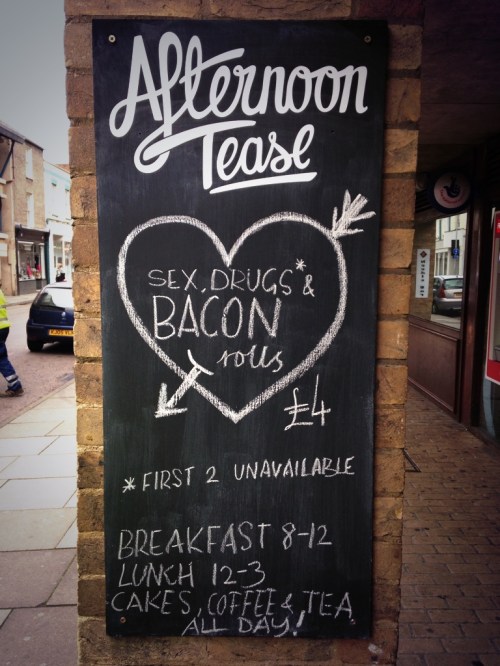 Afternoon
Tease
SEX, DRUGS* &
BACON
rolls
£4
* FIRST 2 UNAVAILABLE
BREAKFAST 8-12
LUNCH 12-3
CAKES, COFFEE & TEA
ALL DAY!